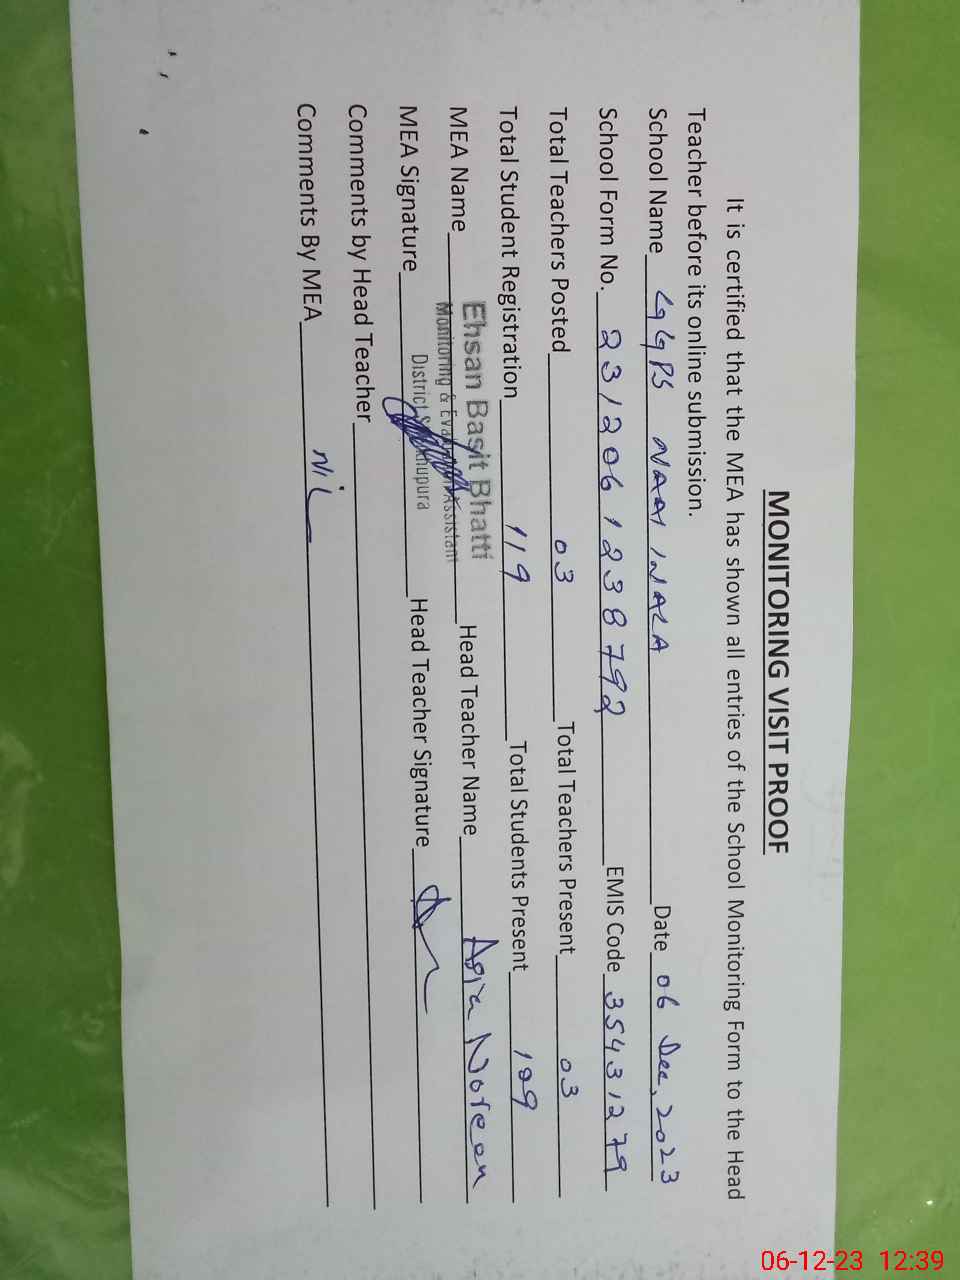 MONITORING VISIT PROOF
It is certified that the MEA has shown all entries of the School Monitoring Form to the Head
Teacher before its online submission.
School Name GGPS NAAI WALA Date 06 Dec, 2023
School Form No. 2312061238792 EMIS Code 35431279
Total Teachers Posted 03 Total Teachers Present 03
Total Student Registration 119 Total Students Present 109
MEA Name Ehsan Basit Bhatti Head Teacher Name Asia Noreen
Monitoring & Evaluation Assistant
District Sheikhupura
MEA Signature Head Teacher Signature
Comments by Head Teacher
Comments By MEA Nil
06-12-23 12:39